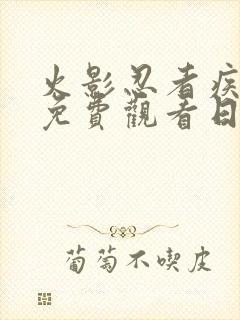 火影忍者疾
免費觀看日
葡萄不喫皮